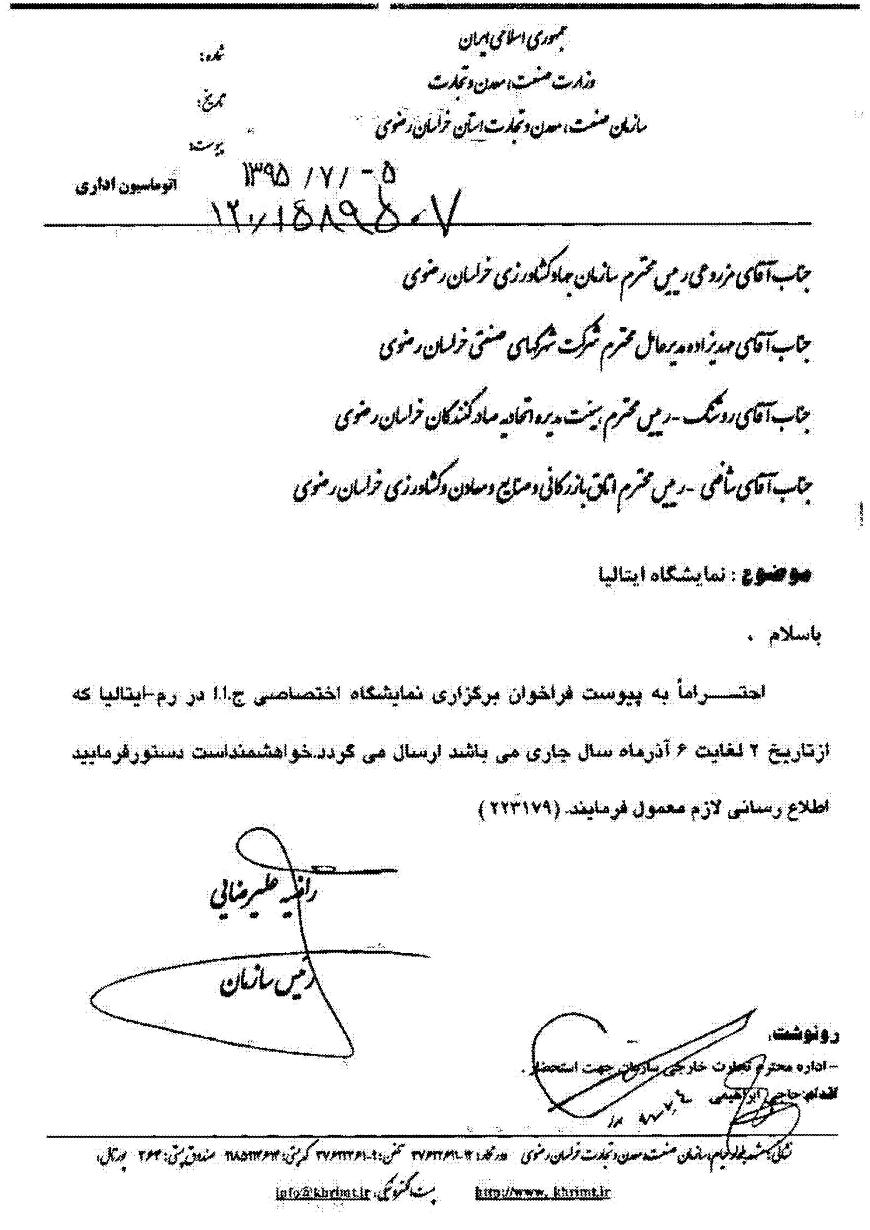 جمهوری اسلامی ایران
وزارت صنعت، معدن و تجارت
سازمان صنعت، معدن و تجارت استان خراسان رضوی
شماره:
تاریخ:
پیوست:
۱۳۹۵ /۷/ -۵
اتوماسیون اداری
۱۲۰/۱۵۸۹۵۰۷
جناب آقای مزروعی رییس محترم سازمان جهاد کشاورزی خراسان رضوی
جناب آقای مهدیزاده مدیرعامل محترم شرکت شهرکهای صنعتی خراسان رضوی
جناب آقای روشنک -رییس محترم هییت مدیره اتحادیه صادرکنندگان خراسان رضوی
جناب آقای شافعی -رییس محترم اتاق بازرگانی و صنایع و معادن و کشاورزی خراسان رضوی
موضوع : نمایشگاه ایتالیا
باسلام .
احتـــراماً به پیوست فراخوان برگزاری نمایشگاه اختصاصی ج.ا.ا در رم-ایتالیا که
ازتاریخ ۲ لغایت ۶ آذرماه سال جاری می باشد ارسال می گردد.خواهشمنداست دستورفرمایید
اطلاع رسانی لازم معمول فرمایند. (۲۲۳۱۷۹)
راضیه علیرضایی
رئیس سازمان
رونوشت:
- اداره محترم تجارت خارجی سازمان جهت استحضار .
اقدام: حاجی ابراهیمی
نشانی: مشهد بلوار خیام، سازمان صنعت، معدن و تجارت خراسان رضوی دورنگار: تلفن: کدپستی: صندوق پستی: ۲۶۴ پورتال:
http://www. khrimt.ir پست الکترونیکی: info@khrimt.ir